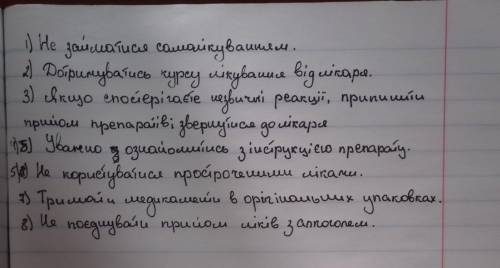 1) Не займатися самолікуванням.
2) Дотримуватись курсу лікування від лікаря.
3) Якщо спостерігаєте незвичні реакції, припинити
прийом препаратів і звернутися до лікаря
4) Уважно ознайомитись з інструкцією препарату.
5) Не користуватися простроченими ліками.
7) Тримати медикаменти в оригінальних упаковках.
8) Не поєднувати прийом ліків з алкоголем.